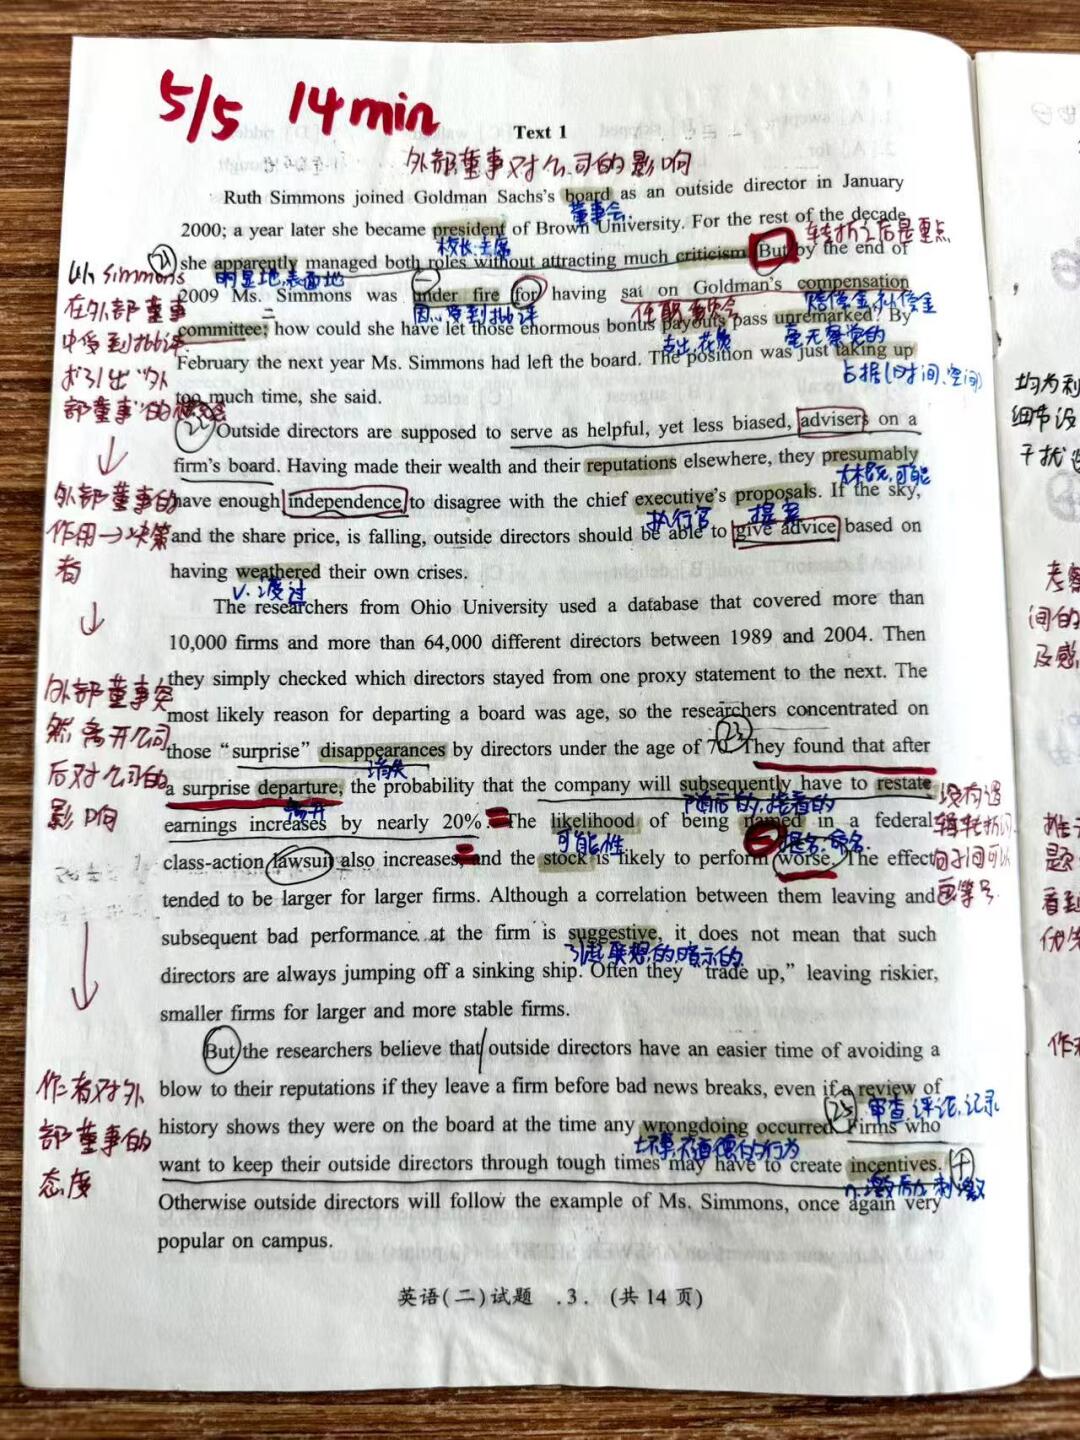 5/5 14min
Text 1
外部董事对公司的影响
Ruth Simmons joined Goldman Sachs's board as an outside director in January
董事会
2000; a year later she became president of Brown University. For the rest of the decade
校长.主席
转折之后是重点
21
she apparently managed both roles without attracting much criticism. But by the end of
明显地,表面地
2009 Ms. Simmons was under fire for having sat on Goldman's compensation
因...受到批评
任职委员会
赔偿金,补偿金
committee; how could she have let those enormous bonus payouts pass unremarked? By
支出,花费
毫无察觉的
February the next year Ms. Simmons had left the board. The position was just taking up
占据(时间、空间)
too much time, she said.
以 simmons
在外部董事
中受到批评
来引出"外
部董事"的概念
↓
22
Outside directors are supposed to serve as helpful, yet less biased, advisers on a
firm's board. Having made their wealth and their reputations elsewhere, they presumably
大概,可能
have enough independence to disagree with the chief executive's proposals. If the sky,
执行官
提案
and the share price, is falling, outside directors should be able to give advice based on
having weathered their own crises.
v.渡过
外部董事的
作用→决策
者
↓
The researchers from Ohio University used a database that covered more than
10,000 firms and more than 64,000 different directors between 1989 and 2004. Then
they simply checked which directors stayed from one proxy statement to the next. The
most likely reason for departing a board was age, so the researchers concentrated on
those "surprise" disappearances by directors under the age of 70. They found that after
消失
23
a surprise departure, the probability that the company will subsequently have to restate
离开
随后的,接着的
earnings increases by nearly 20%. The likelihood of being named in a federal
可能性
提名.命名.
class-action lawsuit also increases, and the stock is likely to perform worse. The effect
tended to be larger for larger firms. Although a correlation between them leaving and
subsequent bad performance at the firm is suggestive, it does not mean that such
引起联想的,暗示的
directors are always jumping off a sinking ship. Often they "trade up," leaving riskier,
smaller firms for larger and more stable firms.
外部董事突
然离开公司
后对公司的
影响
↓
没有逻
辑转折词
句子间可以
画等号
But the researchers believe that outside directors have an easier time of avoiding a
blow to their reputations if they leave a firm before bad news breaks, even if a review of
审查,评论,记录
25
history shows they were on the board at the time any wrongdoing occurred. Firms who
坏事,不道德的行为
want to keep their outside directors through tough times may have to create incentives.
n.激励,刺激
Otherwise outside directors will follow the example of Ms. Simmons, once again very
popular on campus.
作者对外
部董事的
态度
英语(二)试题 .3. (共14页)
均为利
细节设
干扰
考察
间的
及感
推
题
看到
优先